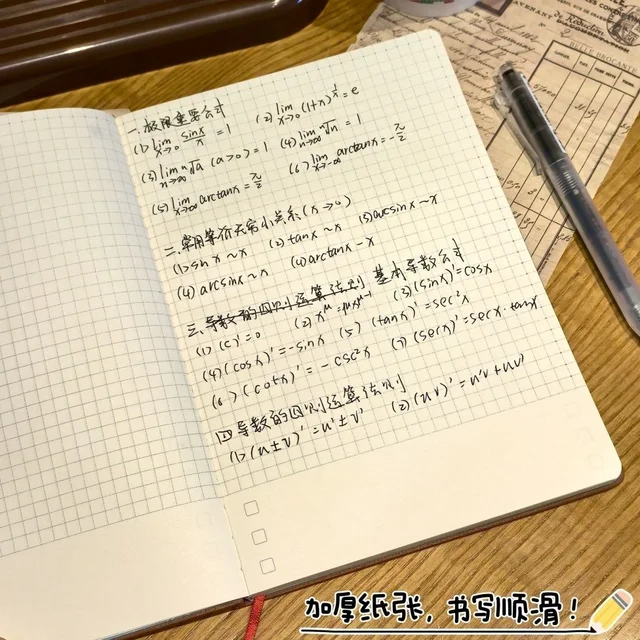 一.极限重要公式
(1) lim x→0 sinx/x = 1 (2) lim x→0 (1+x)^(1/x) = e
(3) lim n→∞ ⁿ√a (a>0) = 1 (4) lim n→∞ ⁿ√n = 1
(5) lim x→∞ arctanx = π/2 (6) lim x→-∞ arctanx = -π/2
二.常用等价无穷小关系(x→0)
(1) sin x ~ x (2) tanx ~ x (3) arcsinx ~ x
(4) arcsinx ~ x (4) arctanx - x
三.导数的四则运算法则 基本导数公式
(1) (c)' = 0 (2) x^μ = μx^(μ-1) (3) (sinx)' = cosx
(4) (cosx)' = -sinx (5) (tanx)' = sec²x
(6) (cotx)' = -csc²x (7) (secx)' = secx·tanx
四 导数的四则运算法则
(1) (u±v)' = u'±v' (2) (uv)' = u'v+uv'
BELLE BROCANTE
加厚纸张,书写顺滑!